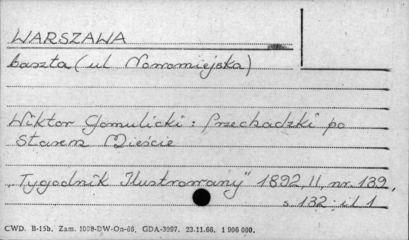 WARSZAWA
baszta (ul Nowomiejska)
Wiktor Gomulicki: Przechadzki po
Starem Mieście
„Tygodnik Ilustrowany" 1892, II, nr. 139,
s. 132: il 1
CWD. B-15b. Zam. 1089-DW-On-66, GDA-3997. 23.11.66. 1 906 000.